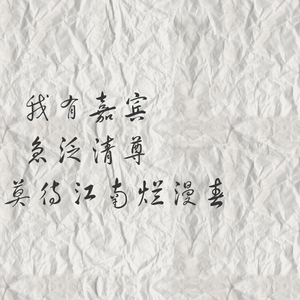 我有嘉宾
急泛清尊
莫待江南烂漫春